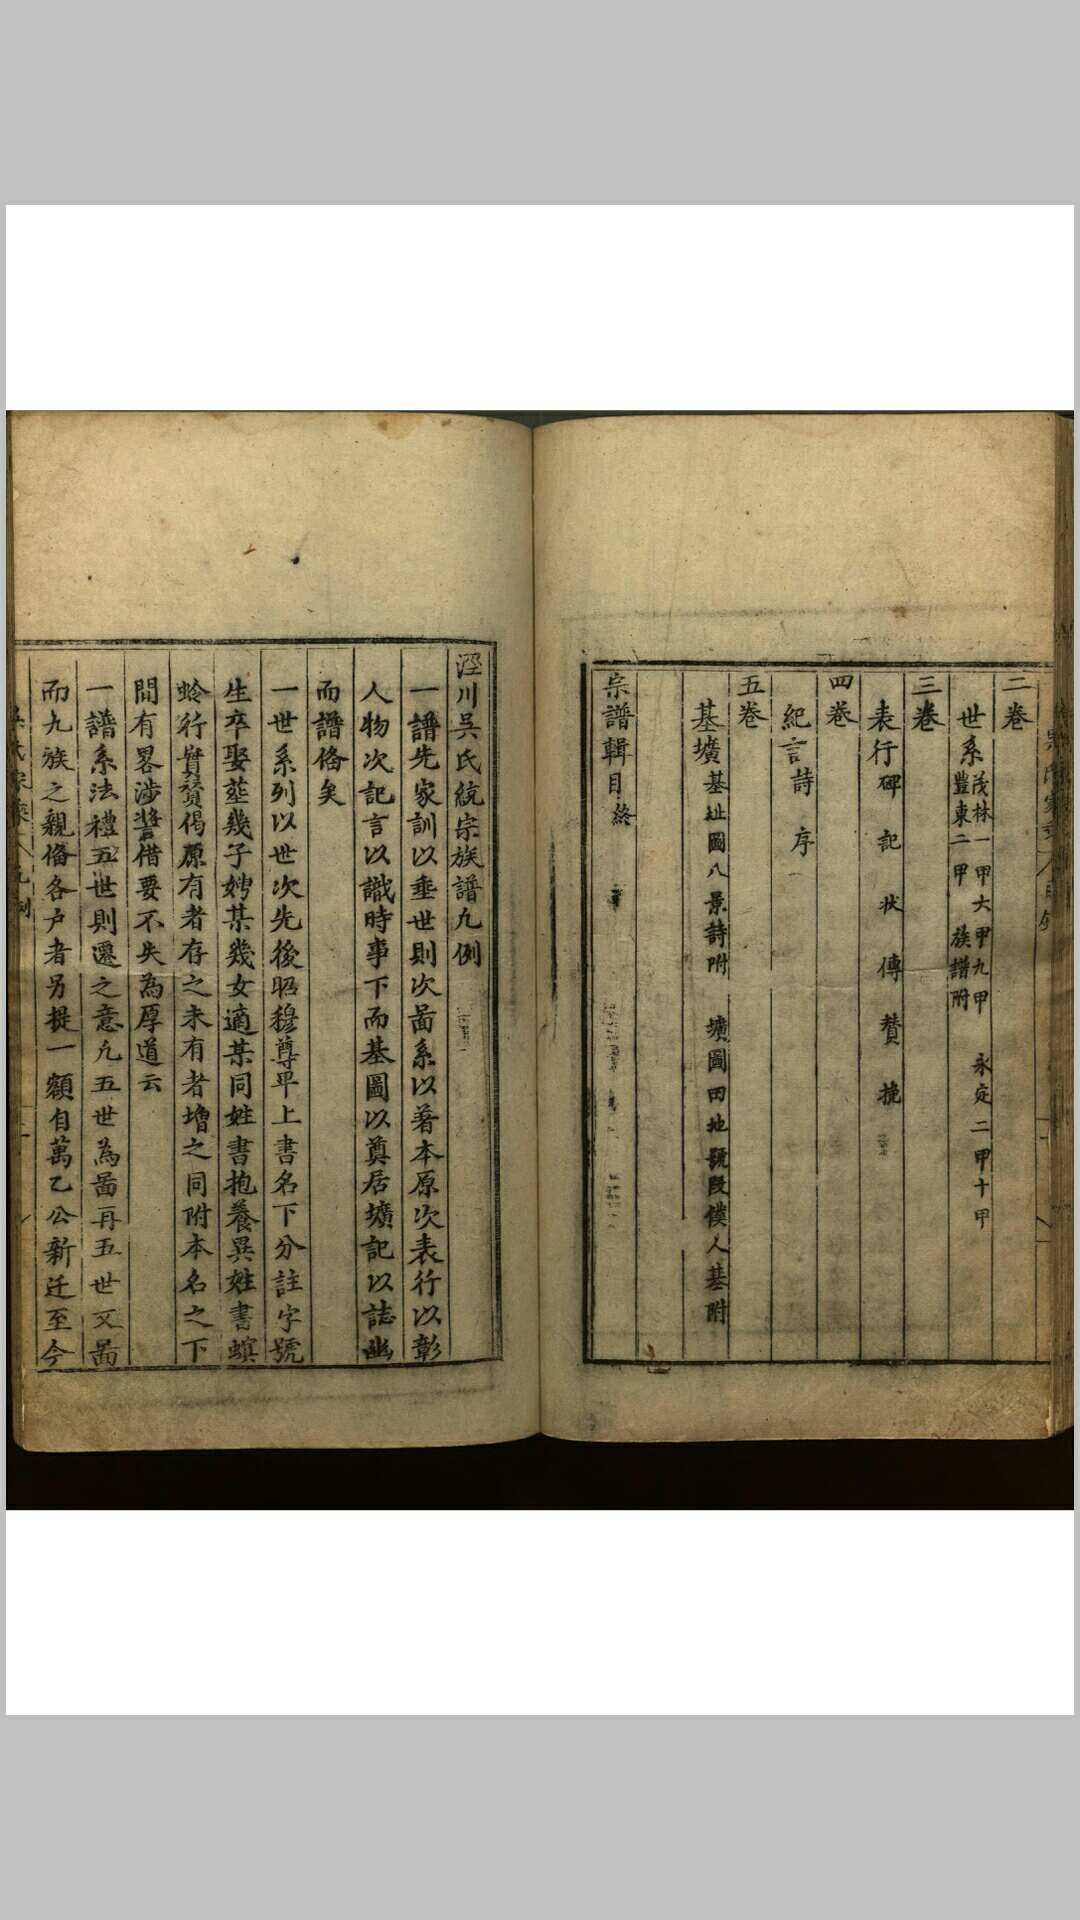 二卷
世系 茂林一甲大甲九甲 永定二甲十甲
豐東二甲 族譜附
三卷
表行 碑 記 狀 傳 贊 挽
四卷
紀言 詩 序
五卷
基壙 基址圖八景詩附 壙圖田地號段僕人墓附
宗譜輯目終
涇川吳氏統宗族譜凡例
一譜先家訓以垂世則次啚系以著本原次表行以彰
人物次記言以識時事下而基圖以奠居壙記以誌幽
而譜俻矣
一世系列以世次先後昭穆尊卑上書名下分註字號
生卒娶塟幾子娉某幾女適某同姓書抱養異姓書螟
蛉行實贊偈原有者存之未有者增之同附本名之下
間有畧涉譏借要不失為厚道云
一譜系法禮五世則遷之意凢五世為啚再五世又啚
而九族之親俻各户者另提一額自萬乙公新迁至今